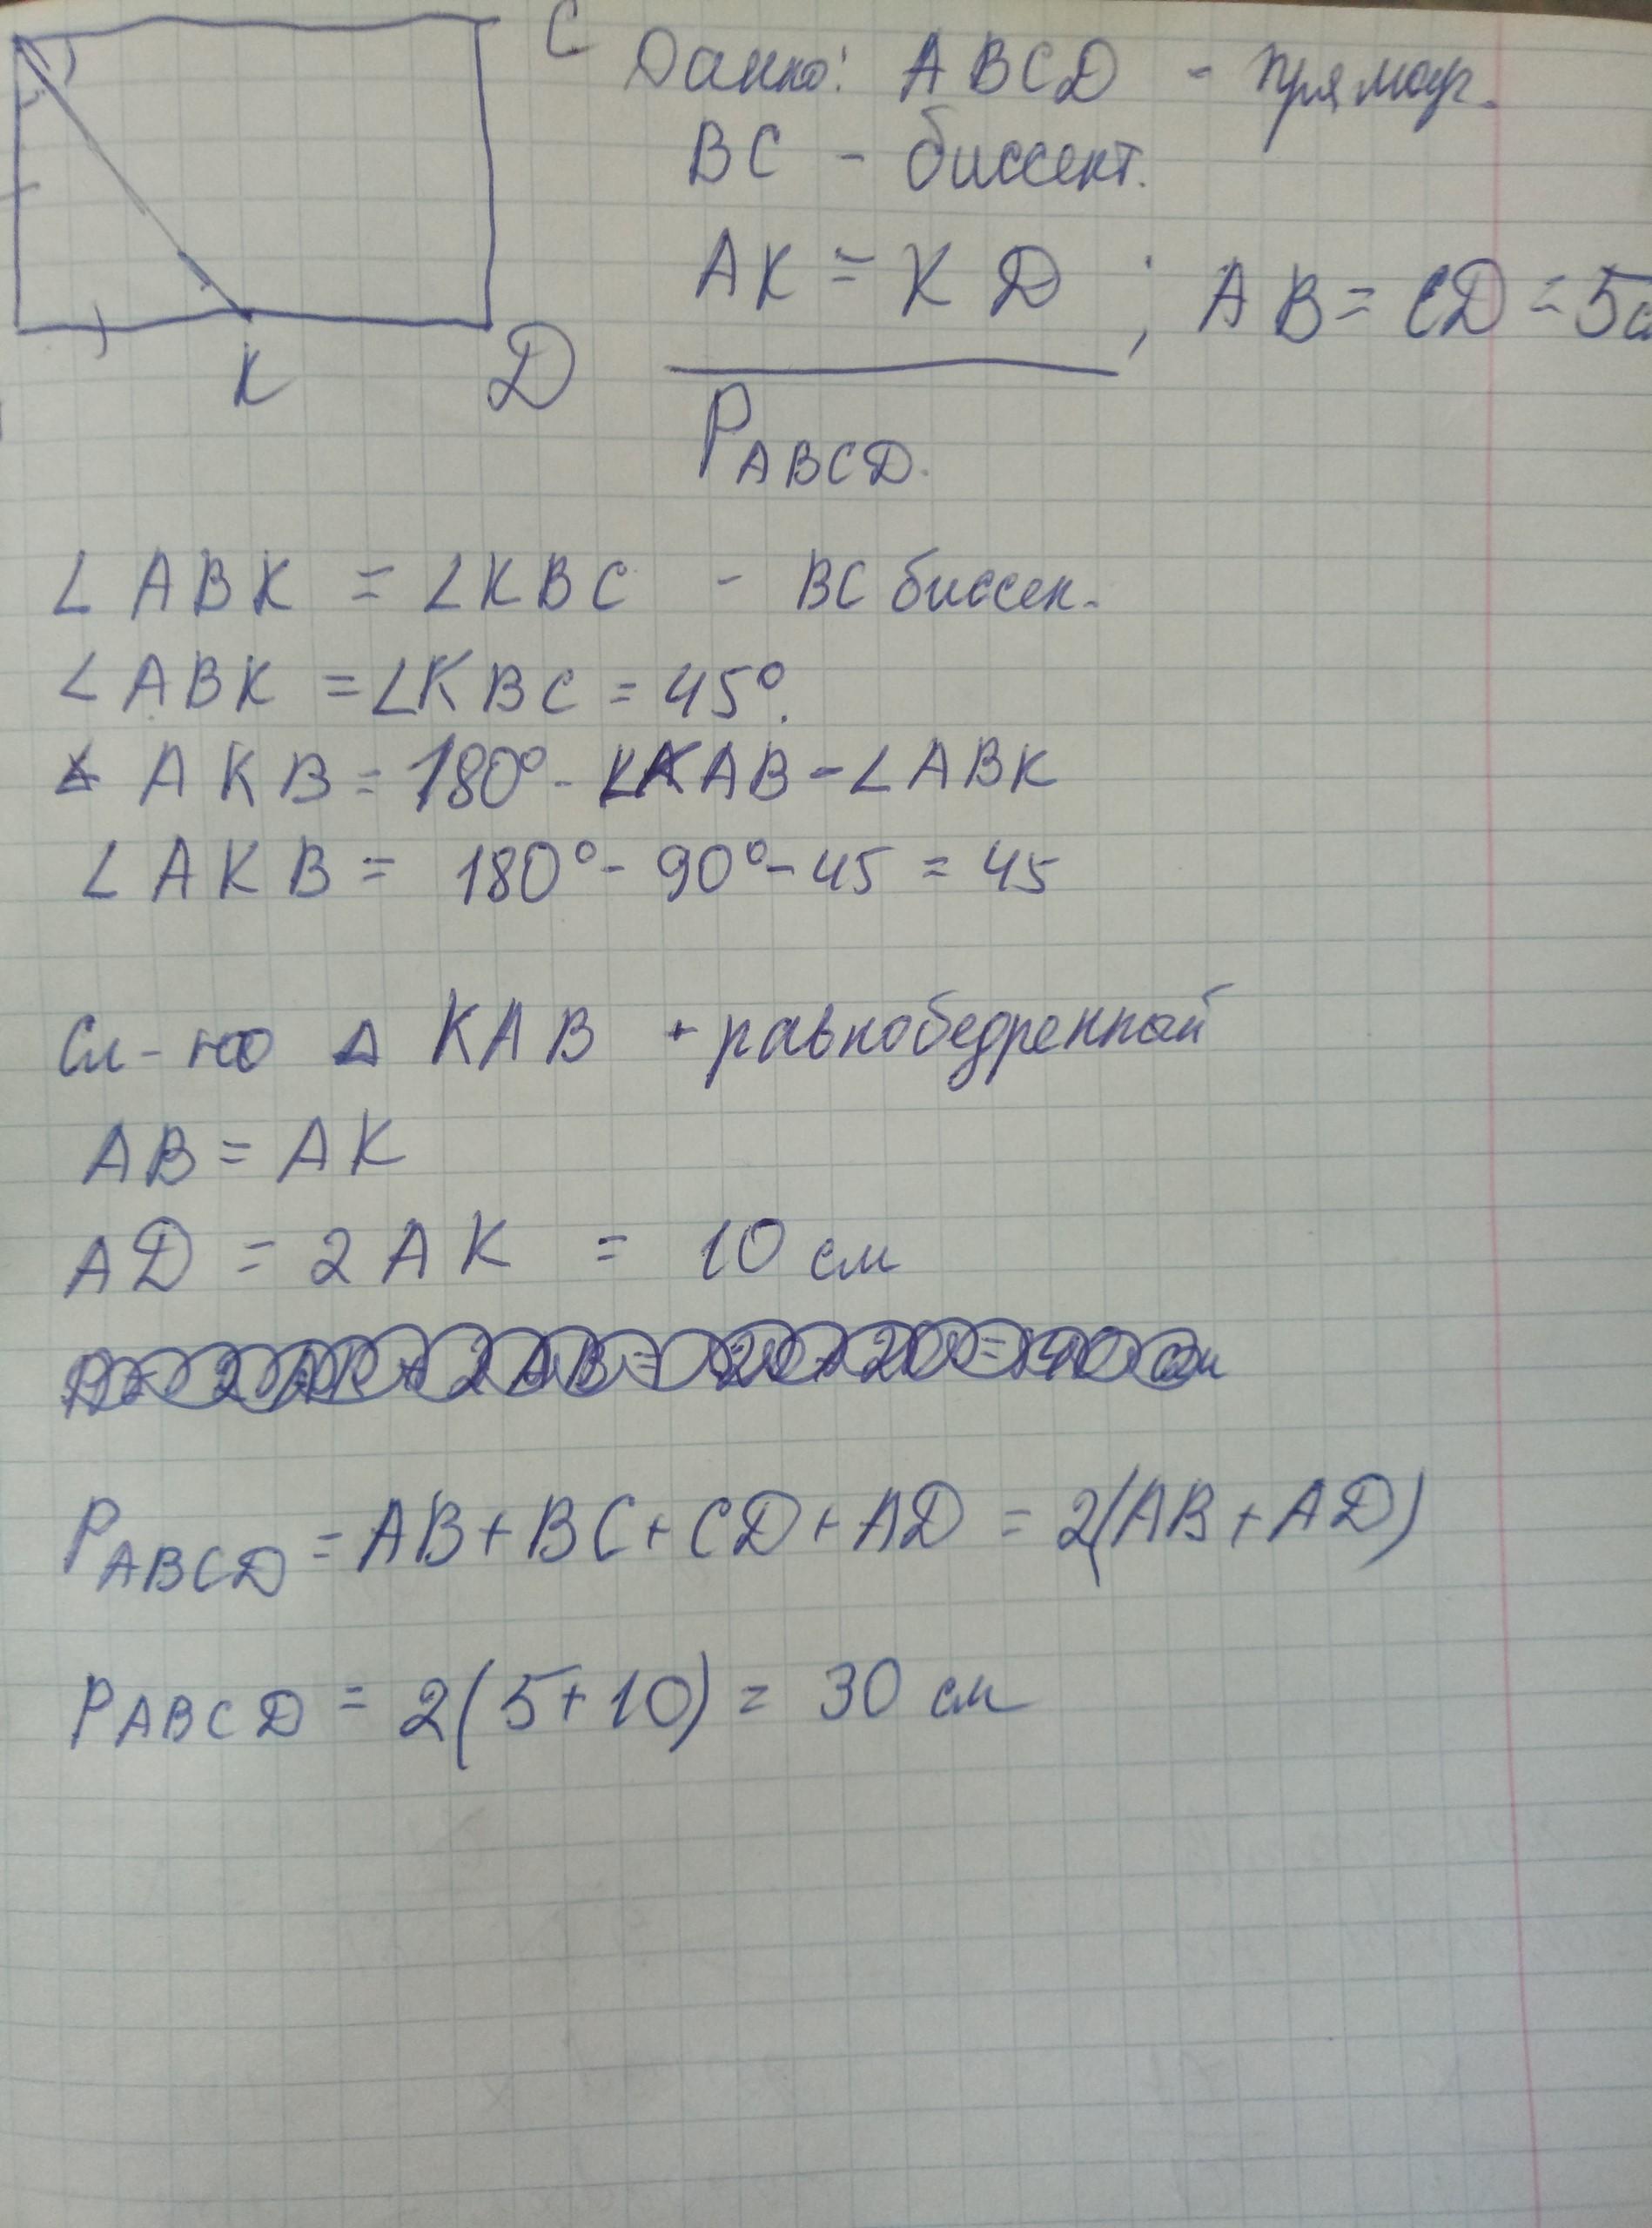 C
Данно: ABCD - прямоуг.
BC - биссект.
AK = KD ; AB = CD = 5с
K
D
P ABCD.
∠ABK = ∠KBC - BC биссек.
∠ABK = ∠KBC = 45°.
∠AKB = 180° - ∠KAB - ∠ABK
∠AKB = 180° - 90° - 45 = 45
Сл-но △ KAB - равнобедренный
AB = AK
AD = 2AK = 10 см
P ABCD = AB + BC + CD + AD = 2(AB + AD)
P ABCD = 2(5+10) = 30 см